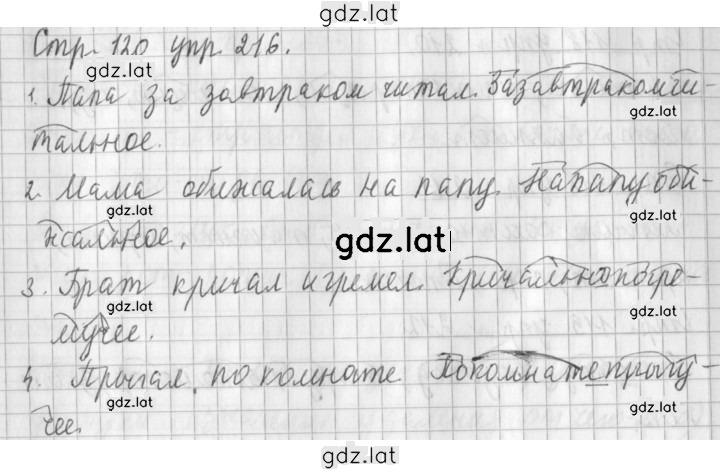 gdz.lat
Стр. 120 упр. 216.
gdz.lat
gdz.lat
1. Папа за завтраком читал. Зазавтракомчи-
тальное.
2. Мама обижалась на папу. Напапуоби-
gdz.lat
gdz.lat
жсальное.
gdz.lat
3. Брат кричал и гремел. Кричально
gdz.lat
gdz.lat
4. Прыгал по комнате. Покомнатепрыгу-
gdz.lat
gdz.lat
чее.
gdz.lat